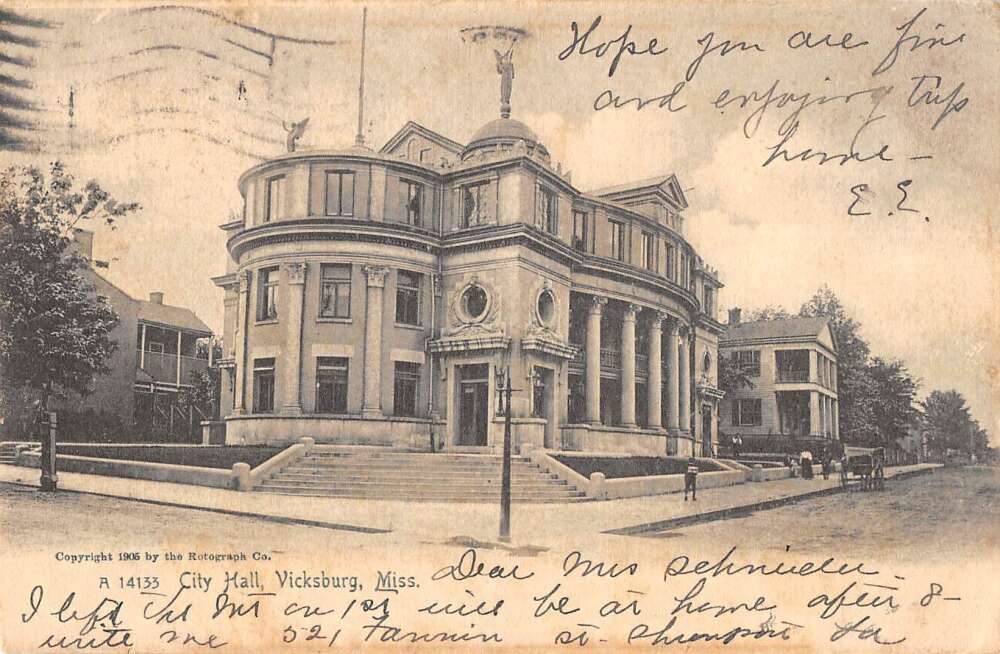 Hope you are fine
and enjoying trip
home –
E.E.
Copyright 1905 by the Rotograph Co.
A 14133 City Hall, Vicksburg, Miss.
Dear Mrs Schnieder.
I left Vis Mt on 1st will be at home after 8–
write me 521 Fannin st – Shreveport La